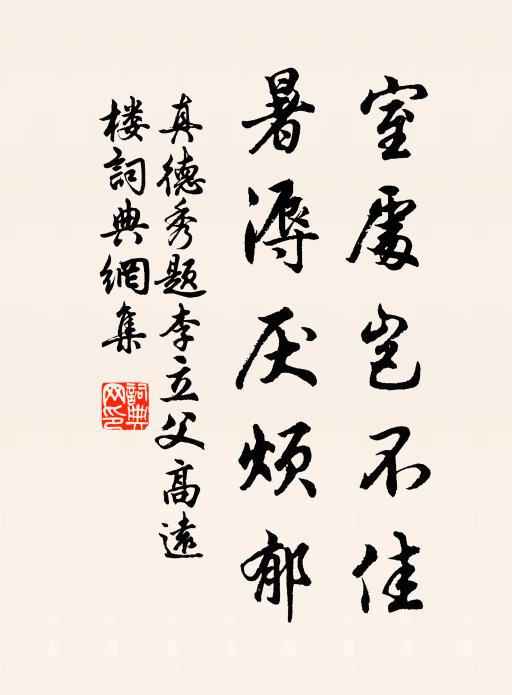 室處岂不佳
暑溽厌烦郁
真德秀题李立父高遠
楼詞典網集
詞典
网印